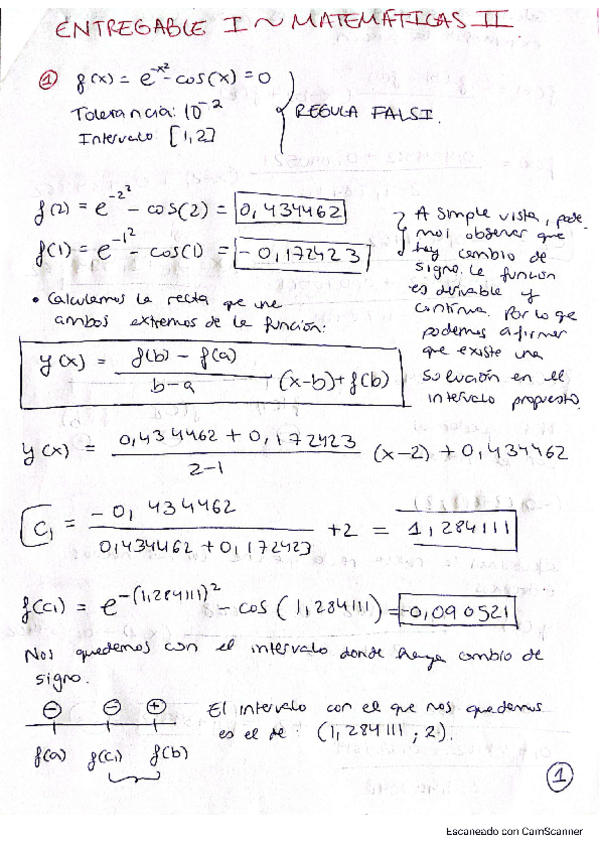 ENTREGABLE I ~ MATEMÁTICAS II.
① f(x) = e^-x² - cos(x) = 0
Tolerancia: 10^-2
Intervalo: [1,2]
REGULA FALSI.
f(2) = e^-2² - cos(2) = 0,434462
f(1) = e^-1² - cos(1) = -0,172423
A simple vista, pode-
mos observar que
hay cambio de
signo. La función
es derivable y
continua. Por lo que
podemos afirmar
que existe una
solución en el
intervalo propuesto.
• Calculamos la recta que une
ambos extremos de la función:
y(x) = f(b) - f(a) / b-a (x-b) + f(b)
y(x) = 0,434462 + 0,172423 / 2-1 (x-2) + 0,434462
C₁ = -0,434462 / 0,434462 + 0,172423 + 2 = 1,284111
f(c₁) = e^-(1,284111)² - cos(1,284111) = -0,090521
Nos quedamos con el intervalo donde haya cambio de
signo.
⊖ ⊖ ⊕
f(a) f(c₁) f(b)
El intervalo con el que nos quedamos
es el de: (1,284111; 2).
①
Escaneado con CamScanner